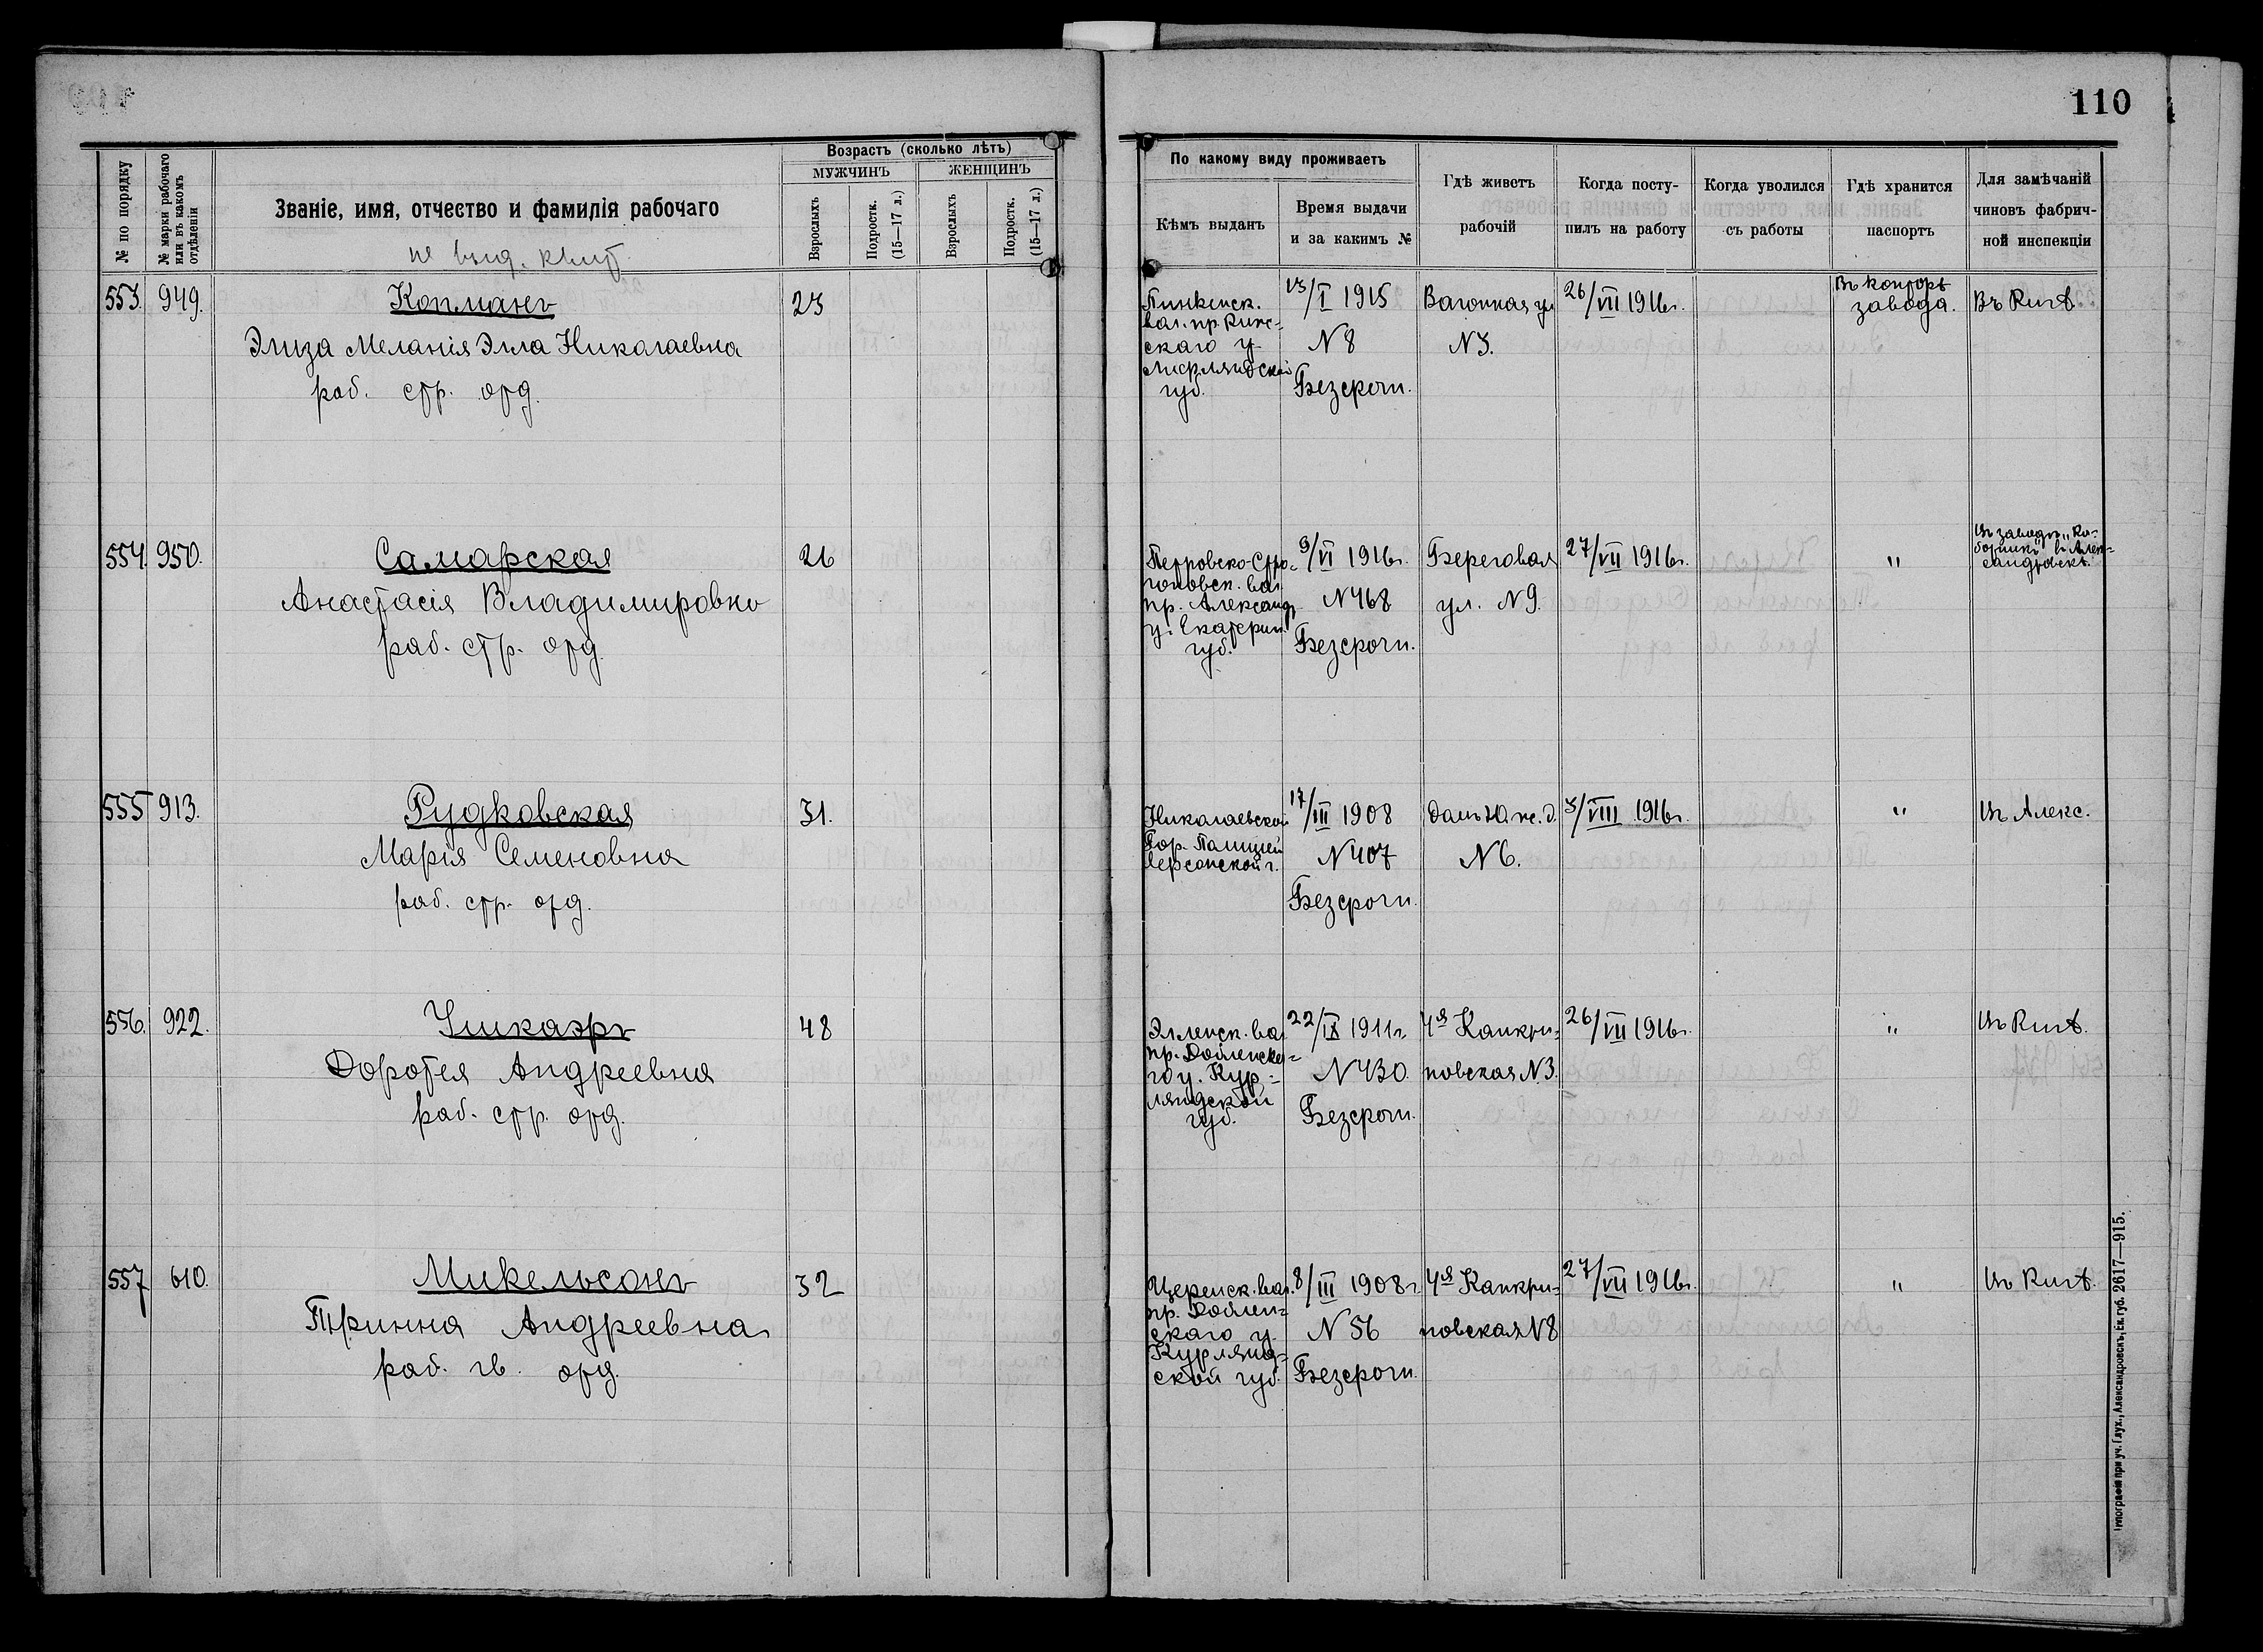 110
№ по порядку
№ марки рабочаго или въ какомъ отдѣленіи
Званіе, имя, отчество и фамилія рабочаго
Возрастъ (сколько лѣтъ)
МУЖЧИНЪ
ЖЕНЩИНЪ
Взрослыхъ
Подростк. (15—17 л.)
Взрослыхъ
Подростк. (15—17 л.)
По какому виду проживаетъ
Кѣмъ выданъ
Время выдачи
и за какимъ №
Гдѣ живетъ
рабочій
Когда посту-
пилъ на работу
Когда уволился
съ работы
Гдѣ хранится
паспортъ
Для замѣчаній
чиновъ фабрич-
ной инспекціи
553. 949. Копманъ 23
Элиза Меланія Элла Николаевна
раб. стр. отд.
Пинкенск.
вал. пр. Рижс-
скаго у.
Лифляндской
губ.
13/I 1915
N 8
Безсрочн.
Вагонная ул
N 3.
26/VII 1916г.
Въ Конторѣ
завода.
Въ Ригѣ
554. 950. Самарская 26
Анастасія Владимировна
раб. стр. отд.
Петровско-Стро-
гоновск. вал.
пр. Александ.
у. Екатерин.
губ.
9/VI 1916г.
N 468
Безсрочн.
Береговая
ул. N 9.
27/VII 1916г.
"
Въ заводѣ
555 913. Рудковская 31.
Марія Семеновна
раб. стр. отд.
Николаевской
Гор. Полиціей
Херсонской г.
17/III 1908
N 407
Безсрочн.
N 6.
3/VIII 1916г.
"
Въ Алекс.
556. 922. 48
Доротея Андреевна
раб. стр. отд.
Элленск. вал
пр. Добленска-
го у. Кур-
ляндской
губ.
22/IX 1911г.
N 430
Безсрочн.
4я Канкри-
новская N 3.
26/VII 1916г.
"
Въ Ригѣ.
557 610. Микельсонъ 32
Тринна Андреевна
раб. гв. отд.
Церенск. вал.
пр. Доблен-
скаго у.
Курлянд-
ской губ.
8/III 1908г
N 56
Безсрочн.
4я Канкри-
новская N 8
27/VII 1916г.
"
Въ Ригѣ.
Типографія при уч. Глух., Александровскъ, Ек. губ. 2617—915.